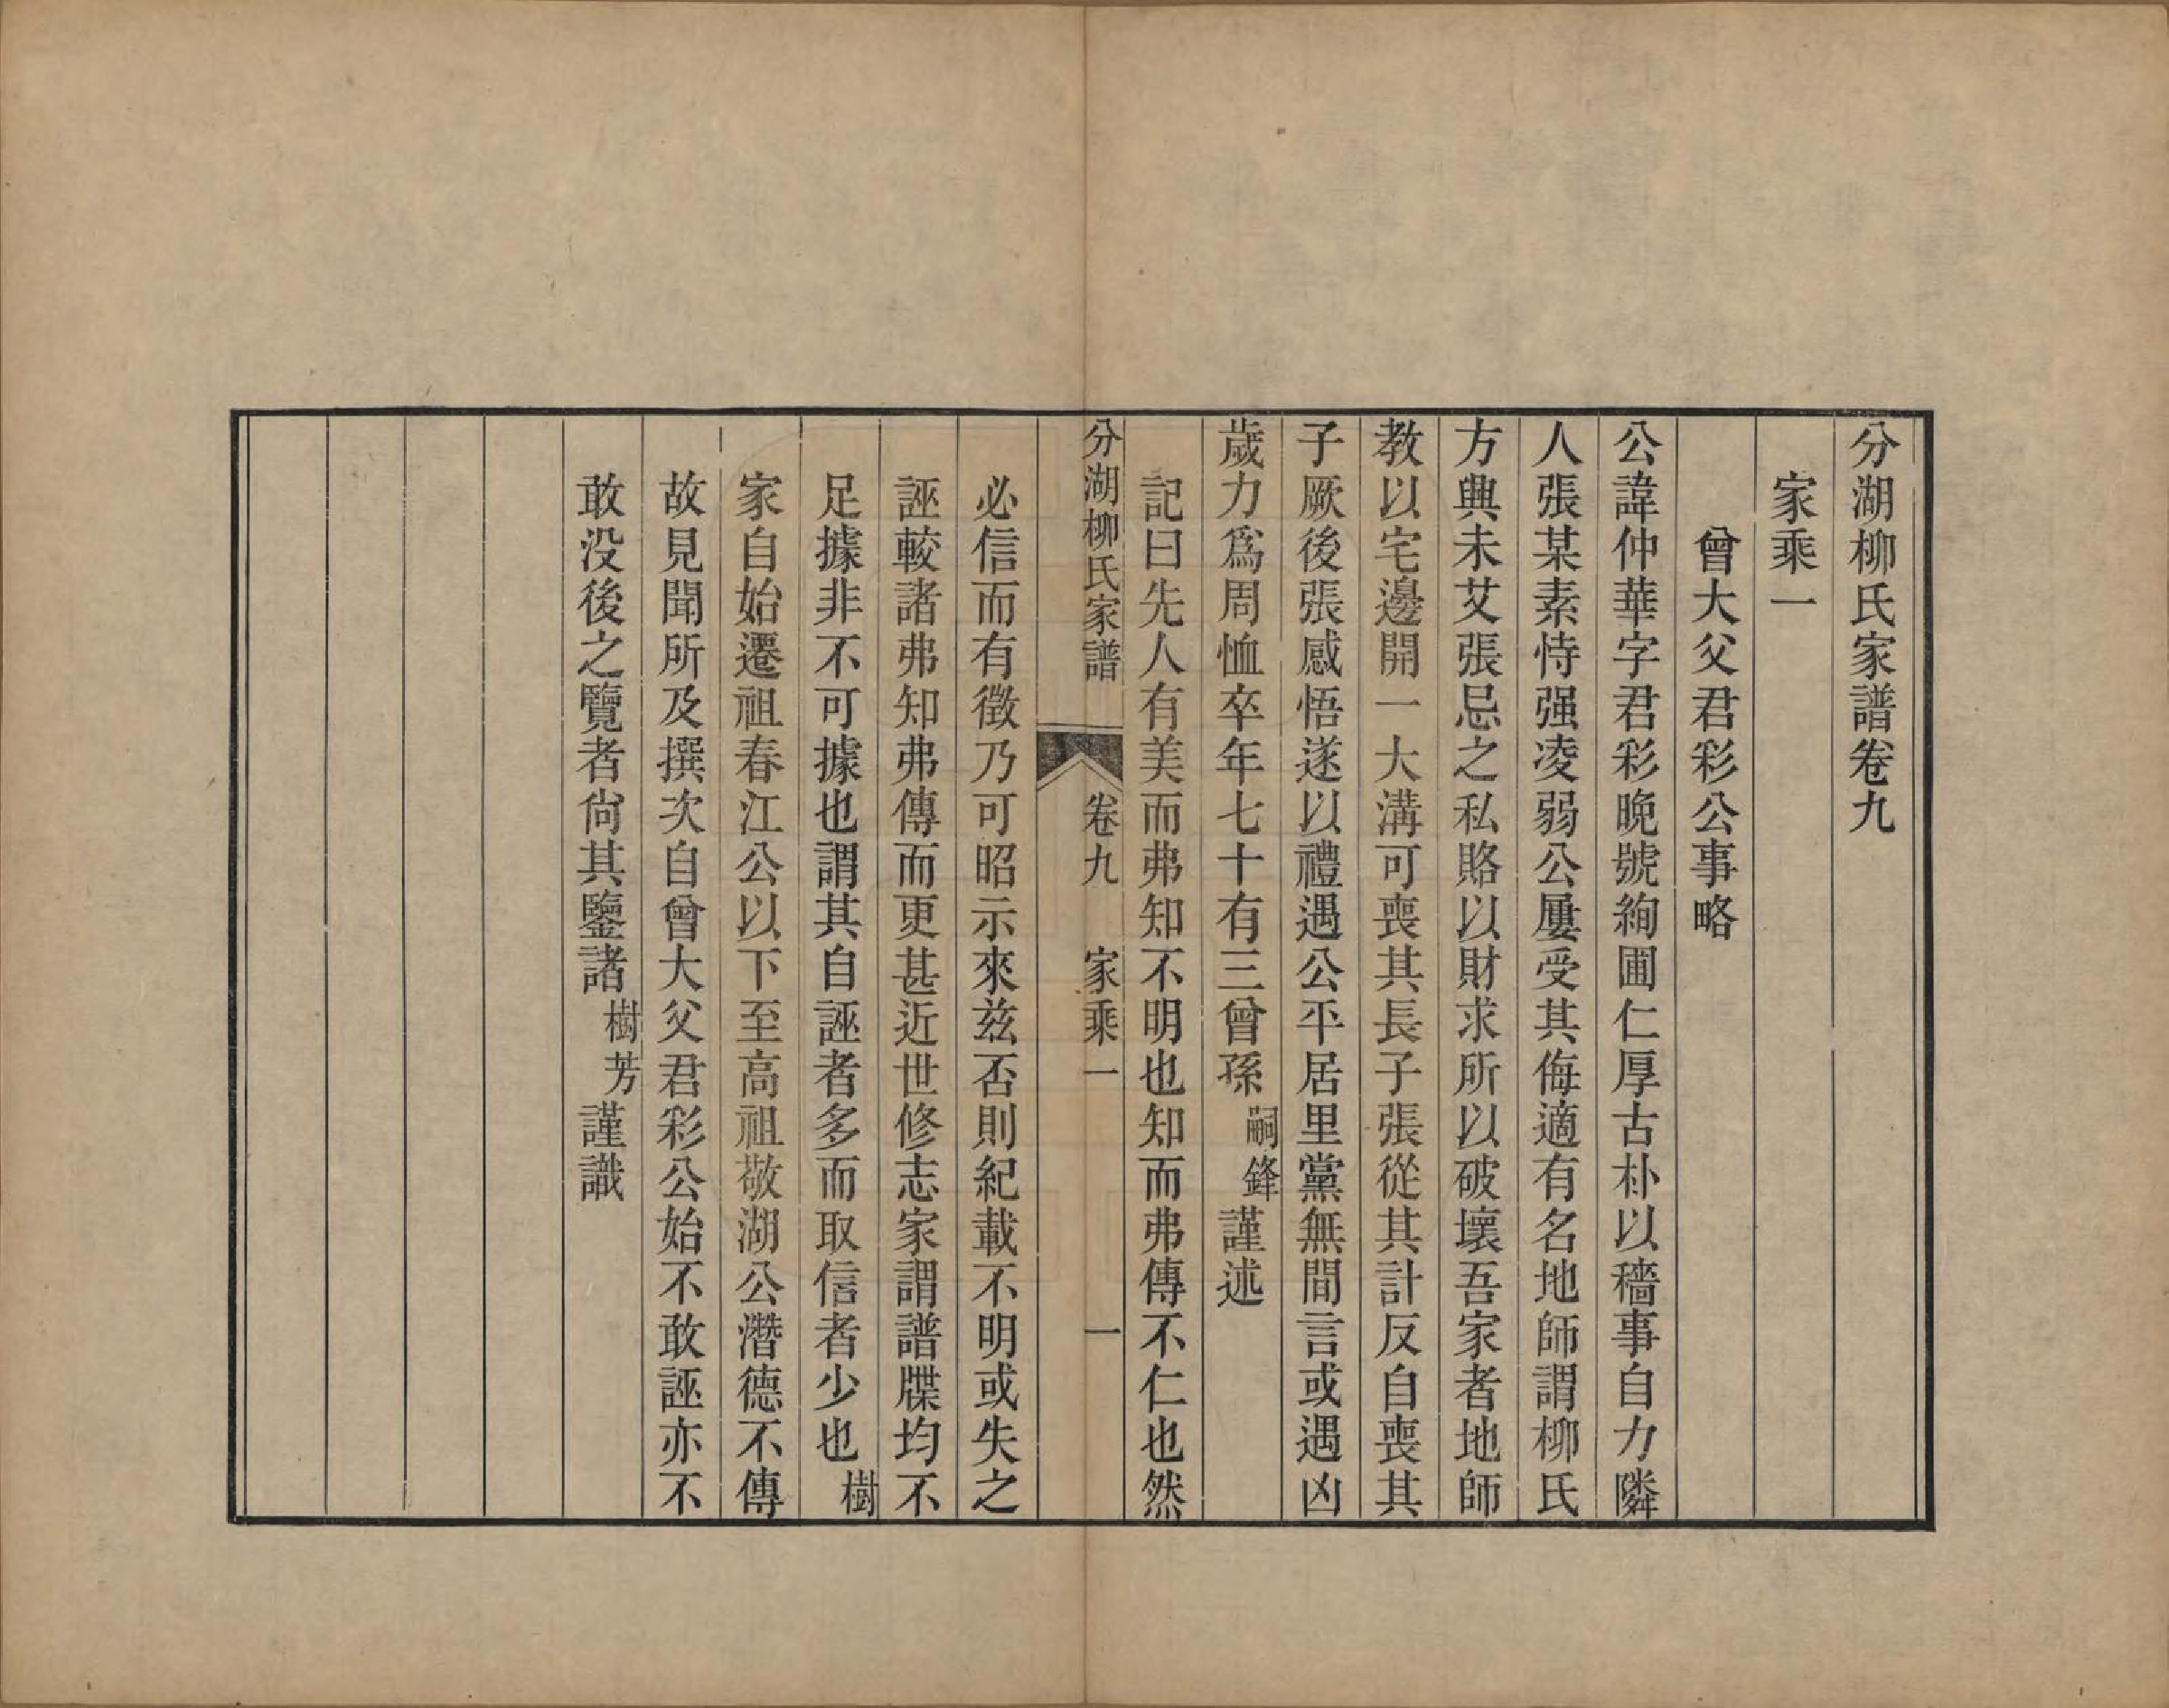 分湖柳氏家譜卷九
家乘一
曾大父君彩公事略
公諱仲華字君彩晚號絢圃仁厚古朴以穡事自力隣
人張某素恃强凌弱公屢受其侮適有名地師謂柳氏
方興未艾張忌之私賂以財求所以破壞吾家者地師
教以宅邊開一大溝可喪其長子張從其計反自喪其
子厥後張感悟遂以禮遇公平居里黨無間言或遇凶
歲力爲周恤卒年七十有三曾孫嗣鋒謹述
記曰先人有美而弗知不明也知而弗傳不仁也然
分湖柳氏家譜 卷九 家乘一 一
必信而有徵乃可昭示來茲否則紀載不明或失之
誣較諸弗知弗傳而更甚近世修志家謂譜牒均不
足據非不可據也謂其自誣者多而取信者少也樹
家自始遷祖春江公以下至高祖敬湖公潛德不傳
故見聞所及撰次自曾大父君彩公始不敢誣亦不
敢没後之覽者尙其鑒諸樹芳謹識